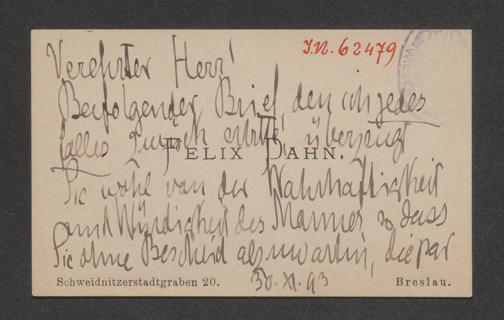 J.N. 62479
Verehrter Herr!
Beifolgender Brief, den ich jedes
falles zurück erbitte, überzeugt
FELIX DAHN.
Sie wohl von der Wahrhaftigkeit
und Würdigkeit des Mannes, so dass
Sie ohne Bescheid abzuwarten, die par
Schweidnitzerstadtgraben 20.
30. XI. 93
Breslau.